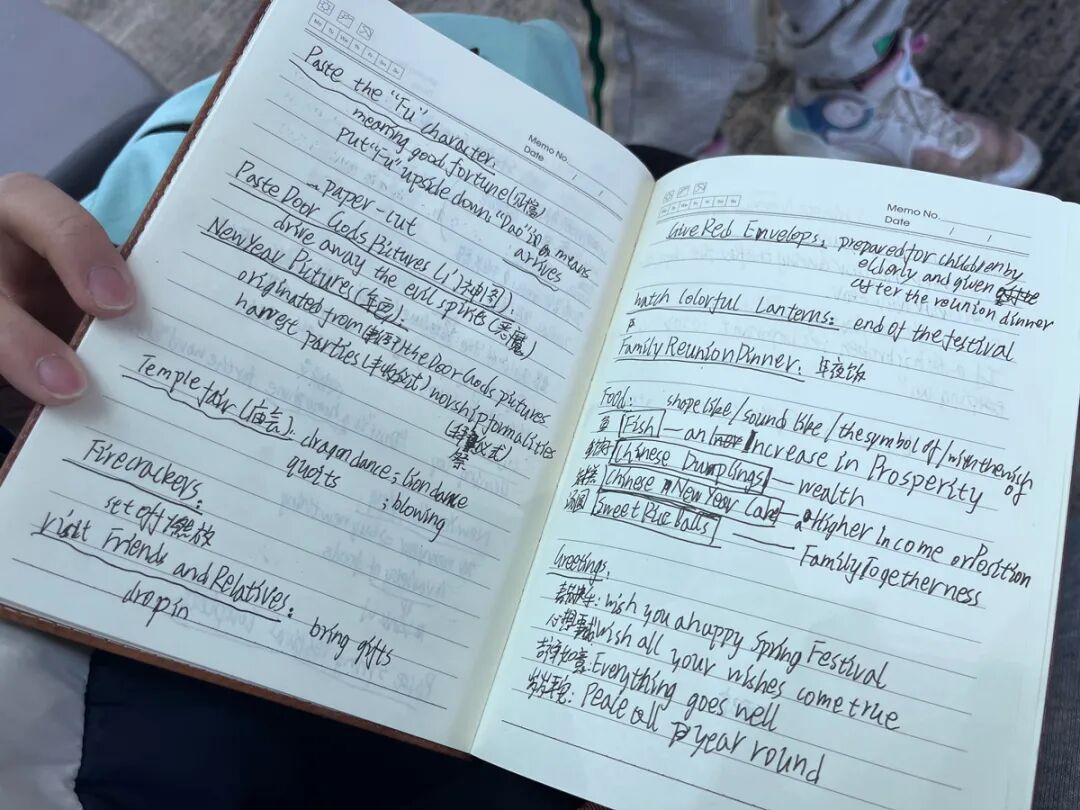 Mo Tu We Th Fr Sa Su
Memo No.
Date / /
Paste the "Fu" character.
meaning good fortune(好運)
put "Fu" upside down. "Dao" means
arrives
→ paper-cut
Paste Door Gods Pictures (门神图).
drive away the evil spirits (恶魔)
New Year Pictures (年画).
originated from the Door Gods pictures
harvest parties (丰收仪式) worship formalities
(祭仪式)
Temple fair (庙会): dragon dance; lion dance
; blowing
quoits
Firecrackers.
set off 燃放
Visit Friends and Relatives: bring gifts
drop in
Mo Tu We Th Fr Sa Su
Memo No.
Date / /
Give Red Envelops. prepared for children by
elderly and given
after the reunion dinner
watch colorful Lanterns: end of the festival
Family Reunion Dinner. 年夜饭
Food: shape like/sound like/the symbol of/with the wish of
鱼 Fish — an Increase in Prosperity
Chinese Dumplings — wealth
Chinese New Year Cake — a Higher income or Position
汤圆 Sweet Rice Balls — Family Togetherness
Greetings.
春节快乐: wish you a happy Spring Festival
心想事成 Wish all your wishes come true
吉祥如意: Everything goes well
岁岁平安: Peace all year round